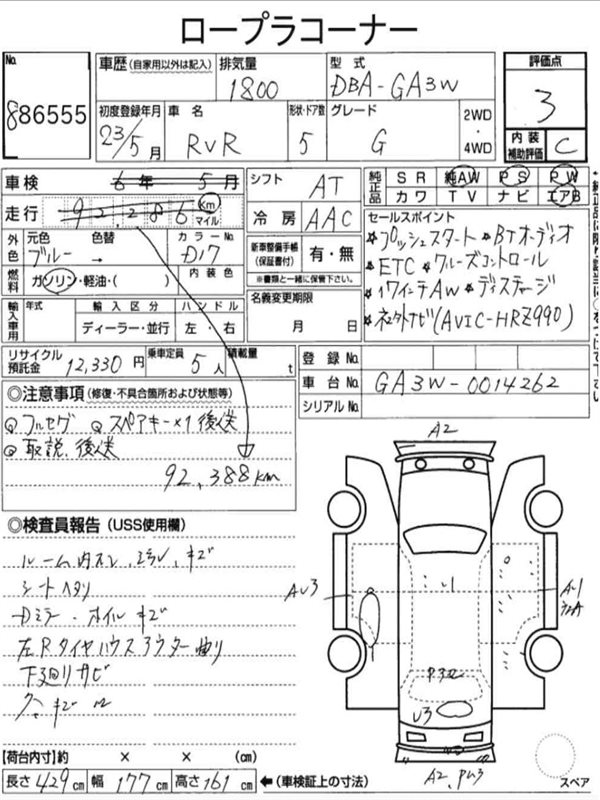 ロープラコーナー
No.
886555
車歴 (自家用以外は記入)
排気量
1800
型式
DBA-GA3W
評価点
3
初度登録年月
23/5月
車名
RVR
形状・ドア数
5
グレード
G
2WD
・
4WD
内装
補助評価
C
車検
6年 5月
シフト
AT
純正品
SR 純AW PS PW
カワ TV ナビ エアB
走行
92,286 Km
マイル
冷房
AAC
セールスポイント
★プッシュスタート ★BTオーディオ
★ETC ★クルーズコントロール
★17インチAW ★ディスチャージ
★ネ土外ナビ(AVIC-HRZ990)
外色
元色
ブルー
色替
→
カラーNo.
D17
新車整備手帳
(保証書付)
有・無
※書類と一緒に保管下さい。
燃料
ガソリン・軽油・( )
内装色
名義変更期限
月 日
輸入車用
年式
輸入区分
ディーラー・並行
ハンドル
左・右
リサイクル
預託金
12,330円
乗車定員
5人
積載量
t
登録No.
車台No.
GA3W-0014262
シリアルNo.
◎注意事項(修復・不具合箇所および状態等)
フルセグ スペアキー×1 後送
取説、後送
92,388km
◎検査員報告(USS使用欄)
シートヘタリ
Dミラー・ホイルキズ
左Rタイヤハウスアウター曲り
下廻りサビ
A2
AU3
A1
U3
A2
スペア
【荷台内寸】約 × × (cm)
長さ429cm 幅177cm 高さ161cm ←(車検証上の寸法)